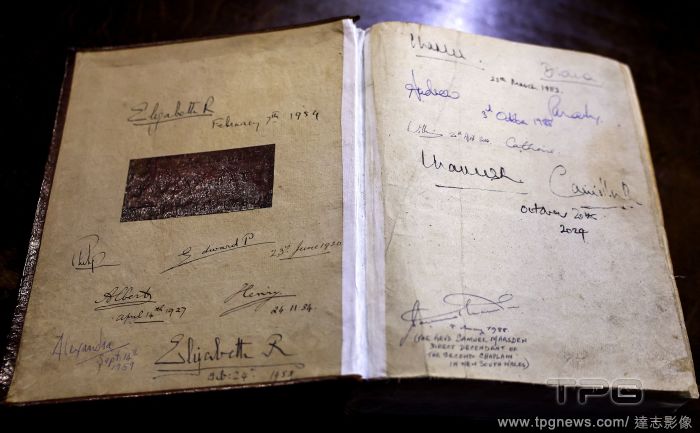 Elizabeth R
February 7th 1954
Philip
Edward P
23rd June 1920
Albert
April 14th 1927
Henry
24.11.34
Alexandra
Sept. 14th
1959
Elizabeth R
Feb: 24th 1958
Charles
Diana
29th March 1983
Andrew
3rd October 1988
Catherine
Charles R
Camilla R
October 20th
2024
(THE REVD SAMUEL MARSDEN
DIRECT DESCENDANT OF
THE SECOND CHAPLAIN
IN NEW SOUTH WALES)
TPG
www.tpgnews.com/ 達志影像